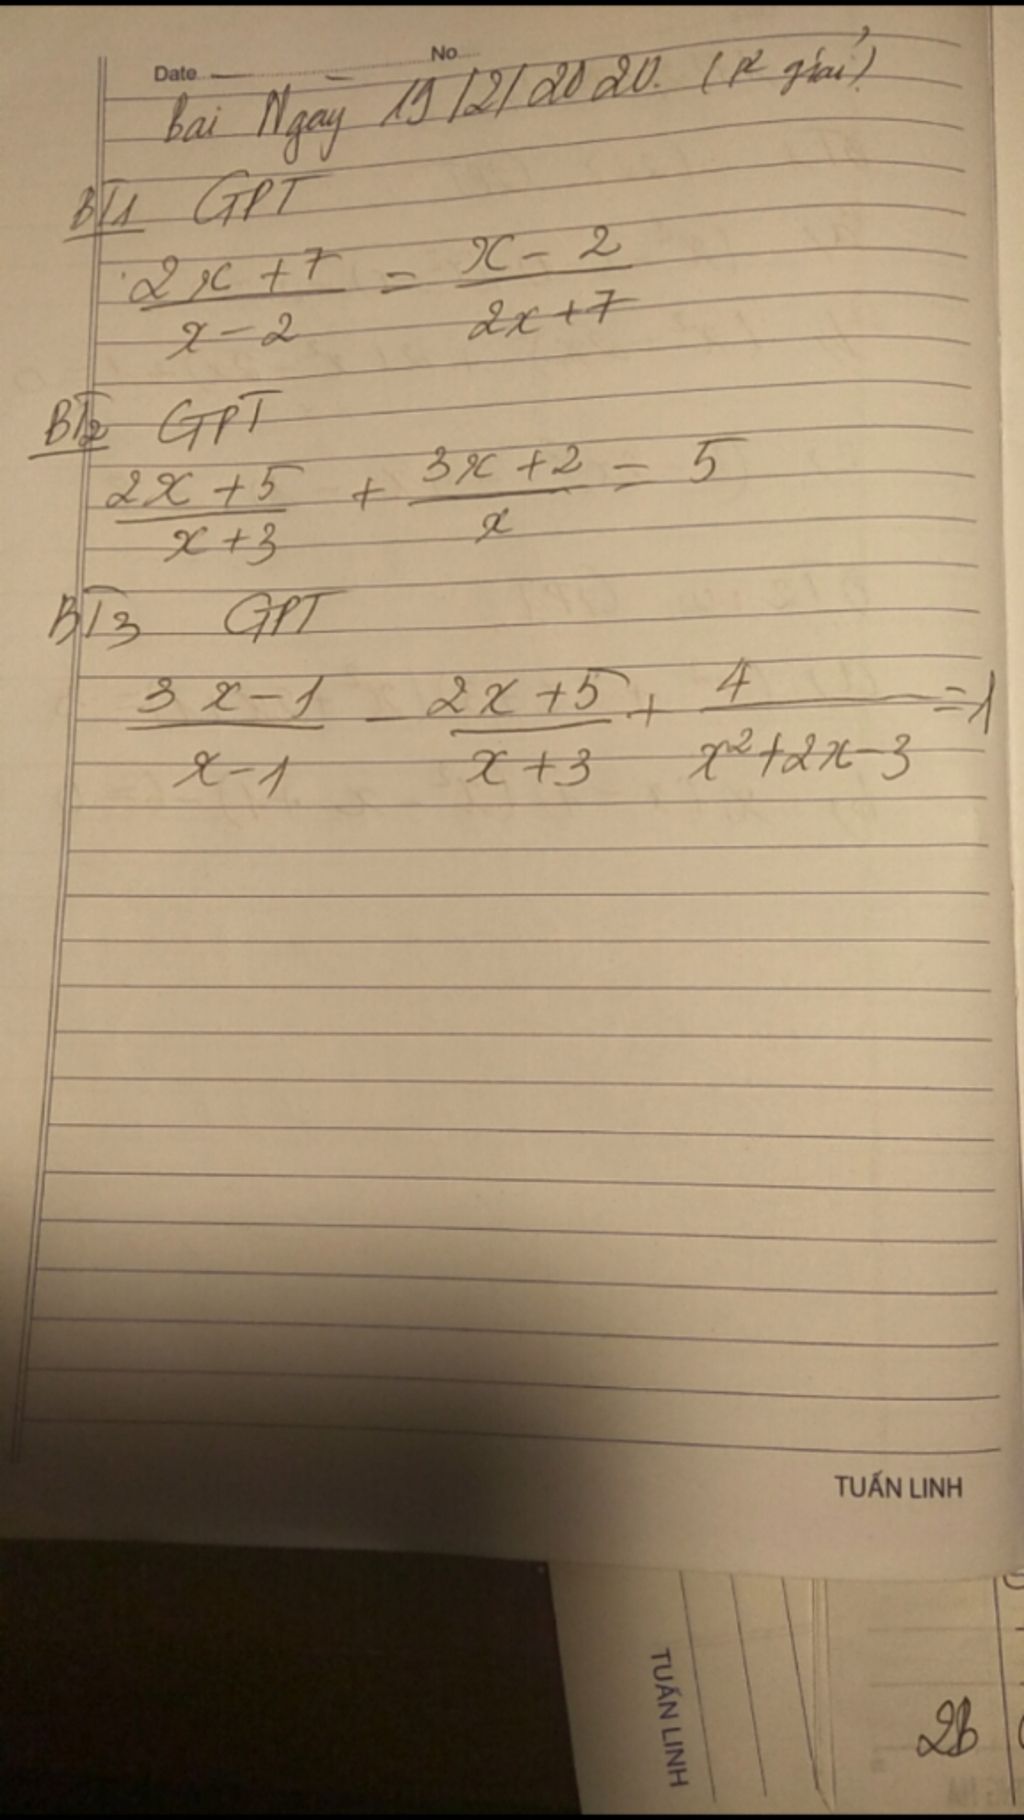 Date No
Bài Ngày 19/2/2020. ( giải)
BT1 GPT
2x+7 / x-2 = x-2 / 2x+7
BT2 GPT
2x+5 / x+3 + 3x+2 / x = 5
BT3 GPT
3x-1 / x-1 - 2x+5 / x+3 + 4 / x²+2x-3 = 1
TUẤN LINH
TUẤN LINH
2b